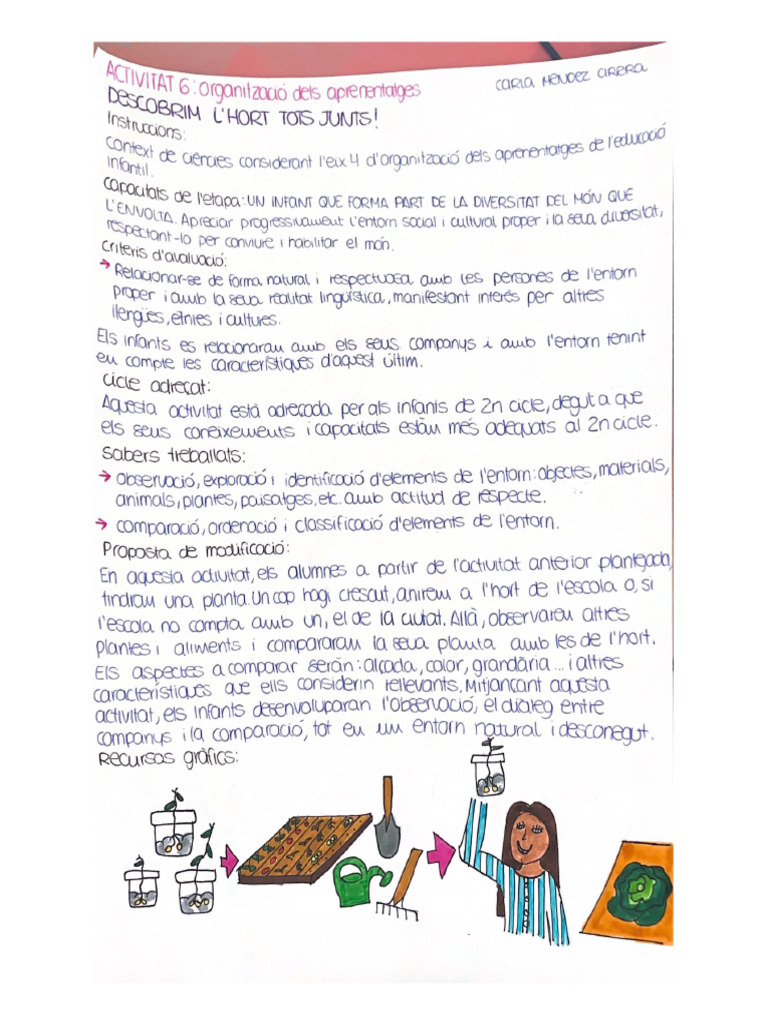 ACTIVITAT 6: organització dels aprenentatges
CARLA MÉNDEZ CIRERA
DESCOBRIM L'HORT TOTS JUNTS!
Instruccions:
Context de ciències considerant l'eix 4 d'organització dels aprenentatges de l'educació
infantil.
Capacitats de l'etapa: UN INFANT QUE FORMA PART DE LA DIVERSITAT DEL MÓN QUE
L'ENVOLTA. Apreciar progressivament l'entorn social i cultural proper i la seva diversitat,
respectant-lo per conviure i habilitar el món.
Criteris d'avaluació:
→ Relacionar-se de forma natural i respectuosa amb les persones de l'entorn
proper i amb la seva realitat lingüística, manifestant interès per altres
llengües, etnies i cultures.
Els infants es relacionaran amb els seus companys i amb l'entorn tenint
en compte les característiques d'aquest últim.
Cicle adreçat:
Aquesta activitat està adreçada per als infants de 2n cicle, degut a que
els seus coneixements i capacitats estàn més adequats al 2n cicle.
Sabers treballats:
→ observació, exploració i identificació d'elements de l'entorn: objectes, materials,
animals, plantes, paisatges, etc. amb actitud de respecte.
→ comparació, ordenació i classificació d'elements de l'entorn.
Proposta de modificació:
En aquesta activitat, els alumnes a partir de l'activitat anterior plantejada,
tindran una planta. Un cop hagi crescut, anirem a l'hort de l'escola o, si
l'escola no compta amb un, el de la ciutat. Allà, observaren altres
plantes i aliments i compararan la seva planta amb les de l'hort.
Els aspectes a comparar seràn: alçada, color, grandària... i altres
característiques que ells considerin rellevants. Mitjançant aquesta
activitat, els infants desenvoluparan l'observació, el dialeg entre
companys i la comparació, tot en un entorn natural i desconegut.
Recursos gràfics: